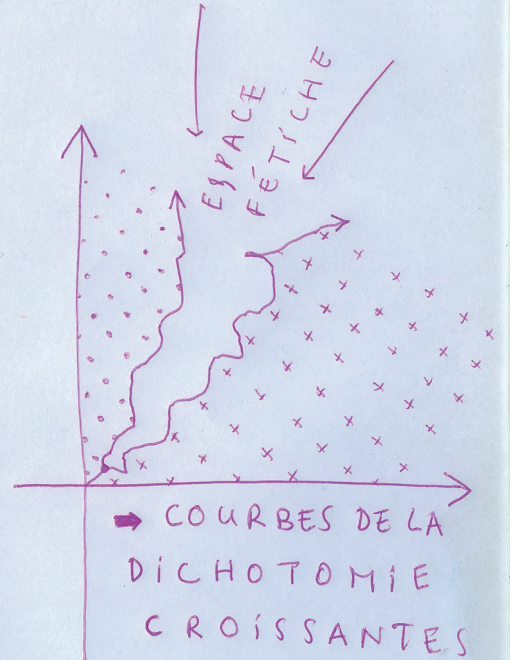 ESPACE
FÉTICHE
➡ COURBES DE LA
DiCHOTOMiE
CROiSSANTES